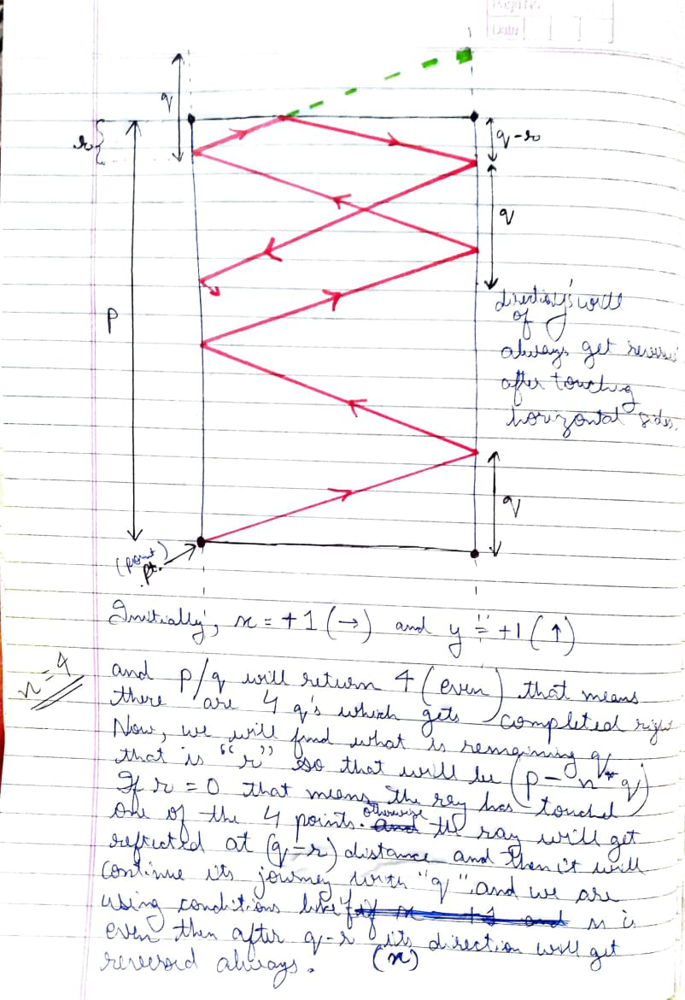 Date
q
r
q-r
q
P
direction's will
of y
always get reverse
after touching
horizontal sides.
q
(point)
pt.
Initially, x = +1 (→) and y = +1 (↑)
n=4
and p/q will return 4 (even) that means
there are 4 q's which gets completed right
Now, we will find what is remaining q,
that is "r" so that will be (p - n*q)
If r = 0 that means the ray has touched
one of the 4 points. otherwise the ray will get
reflected at (q-r) distance and then it will
continue its journey with "q" and we are
using conditions like if n is
even then after q-r its direction will get
reversed always. (x)